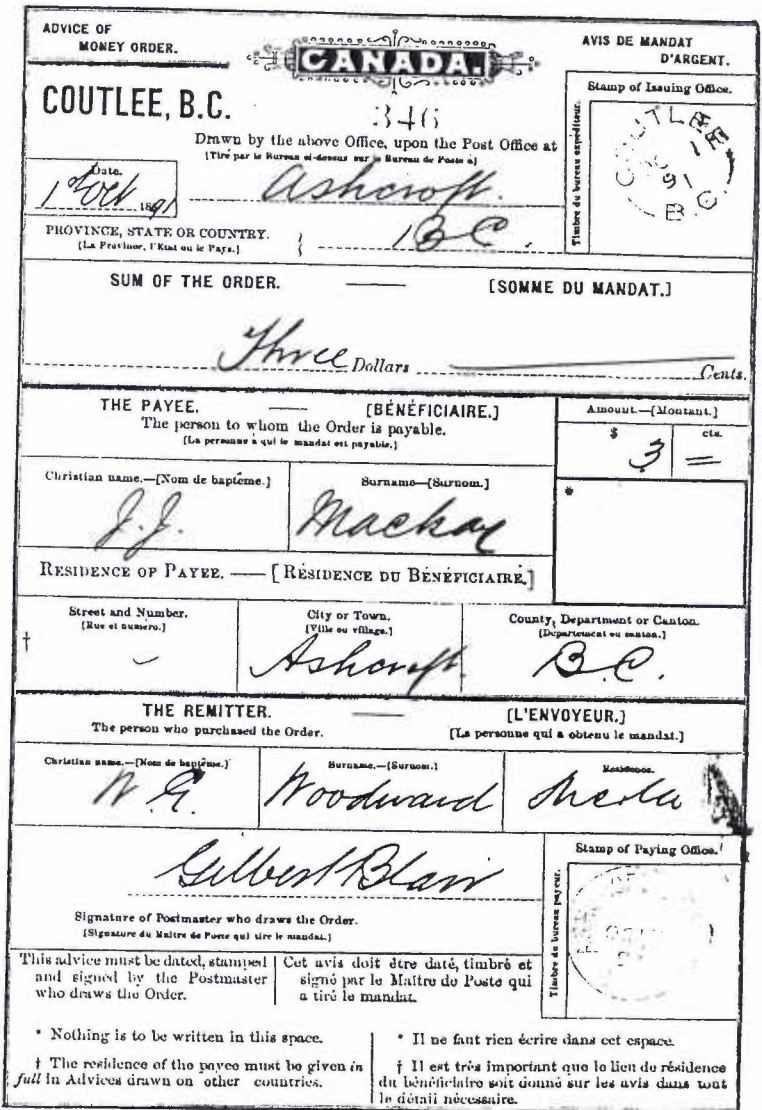 ADVICE OF
MONEY ORDER.
CANADA.
AVIS DE MANDAT
D'ARGENT.
COUTLEE, B.C.
346
Drawn by the above Office, upon the Post Office at
[Tiré par le Bureau ci-dessus sur le Bureau de Poste à]
Stamp of Issuing Office.
Timbre du bureau expéditeur.
COUTLEE
OC 1
91
B.C.
Date.
1st Oct 1891
Ashcroft.
PROVINCE, STATE OR COUNTRY.
[La Province, l'Etat ou le Pays.]
B C.
SUM OF THE ORDER. —— [SOMME DU MANDAT.]
Three Dollars —— Cents.
THE PAYEE. —— [BÉNÉFICIAIRE.]
The person to whom the Order is payable.
[La personne à qui le mandat est payable.]
Amount.—[Montant.]
$ cts.
3 =
Christian name.—[Nom de baptême.]
Surname—[Surnom.]
J. J. Mackay
*
RESIDENCE OF PAYEE. —— [RÉSIDENCE DU BÉNÉFICIAIRE.]
Street and Number.
[Rue et numéro.]
City or Town.
[Ville ou village.]
County, Department or Canton.
[Département ou canton.]
†
Ashcroft. B.C.
THE REMITTER. —— [L'ENVOYEUR.]
The person who purchased the Order. [La personne qui a obtenu le mandat.]
Christian name.—[Nom de baptême.]
Surname.—[Surnom.]
Residence.
Woodward
Gilbert Blair
Signature of Postmaster who draws the Order.
[Signature du Maître de Poste qui tire le mandat.]
Stamp of Paying Office.
Timbre du bureau payeur.
This advice must be dated, stamped
and signed by the Postmaster
who draws the Order.
Cet avis doit être daté, timbré et
signé par le Maître de Poste qui
a tiré le mandat.
* Nothing is to be written in this space.
† The residence of the payee must be given in
full in Advices drawn on other countries.
* Il ne faut rien écrire dans cet espace.
† Il est très important que le lieu de résidence
du bénéficiaire soit donné sur les avis dans tout
le détail nécessaire.